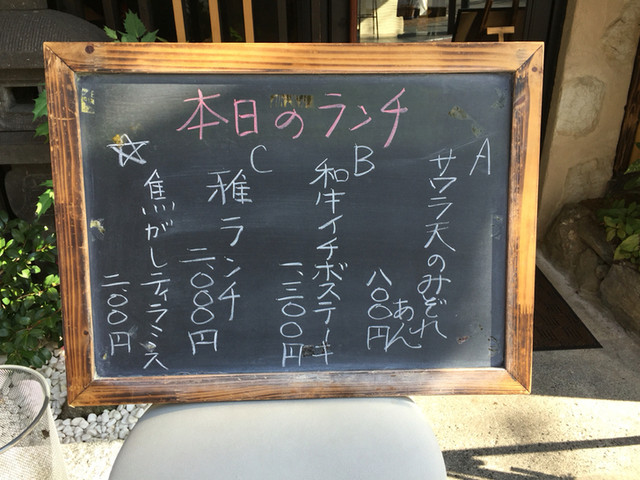 本日のランチ
A
サワラ天のみぞれ
あん
八〇〇円
B
和牛イチボステーキ
一、三〇〇円
C
雅ランチ
二、〇〇〇円
☆
焦がしティラミス
二〇〇円